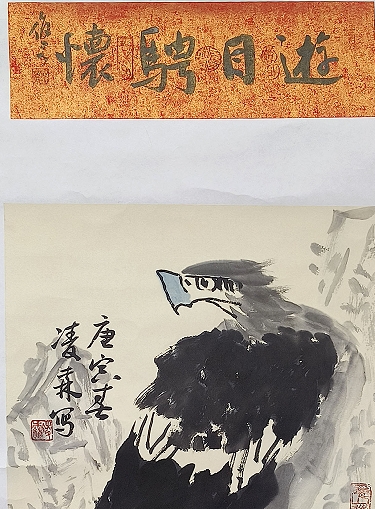 遊目騁懷
庚寅春
凌森写